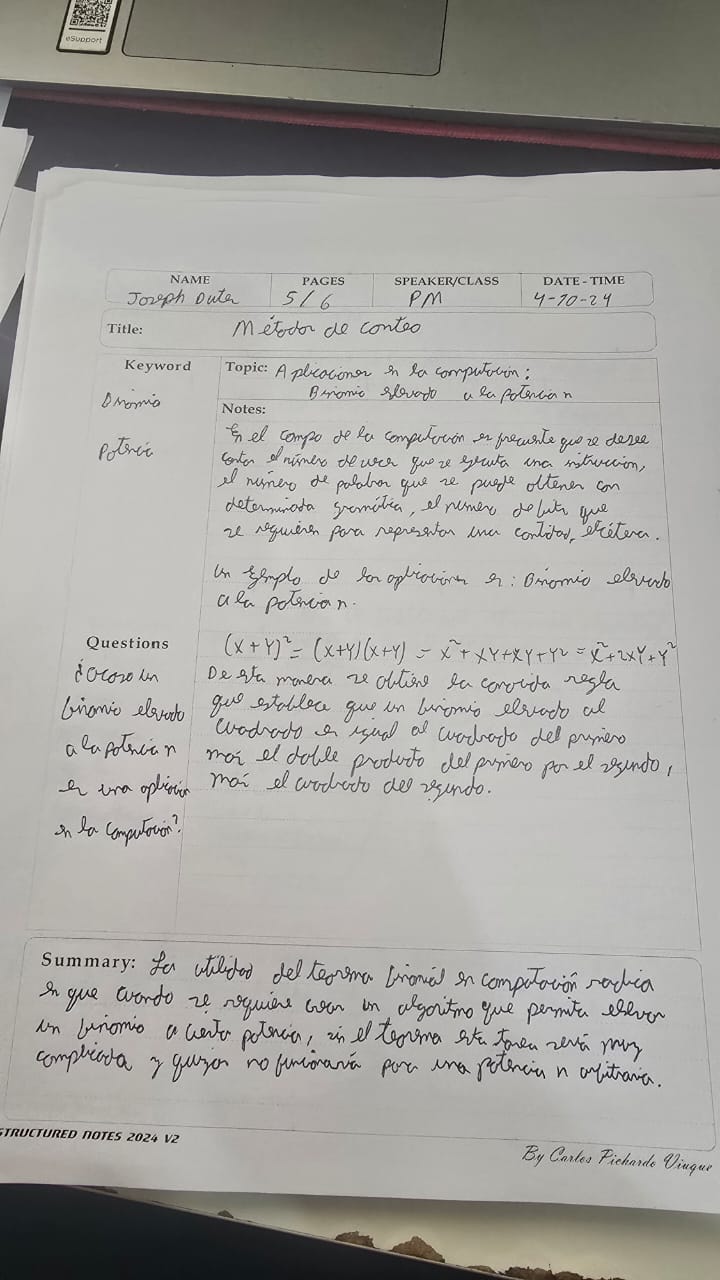 eSupport
NAME
PAGES
SPEAKER/CLASS
DATE - TIME
Joseph
5/6
PM
4-10-24
Title: Métodos de conteo
Keyword
Binomio
Potencia
Topic: Aplicaciones en la computación:
Binomio elevado a la potencia n
Notes:
En el campo de la computación es frecuente que se desee
contar el número de veces que se ejecuta una instrucción,
el número de palabras que se puede obtener con
determinada gramática, el numero de bits que
se requieren para representar una cantidad, etcétera.
Un ejemplo de las aplicaciones es: Binomio elevado
a la potencia n.
(X+Y)²= (X+Y)(X+Y) = X²+XY+XY+Y² = X²+2XY+Y²
De esta manera se obtiene la conocida regla
que establece que un binomio elevado al
cuadrado es igual al cuadrado del primero
más el doble producto del primero por el segundo,
más el cuadrado del segundo.
Questions
¿Acaso un
binomio elevado
a la potencia n
es una aplicación
en la computación?
Summary: La utilidad del teorema binomial en computación radica
en que cuando se requiere crear un algoritmo que permita elevar
un binomio a cierta potencia, sin el teorema esta tarea será muy
complicada y quizás no funcionaría para una potencia n arbitraria.
STRUCTURED NOTES 2024 V2
By Carlos Pichardo Viuque